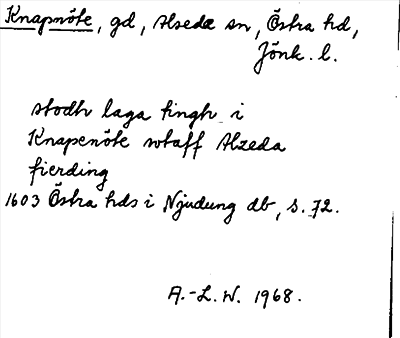 Knapnöte, gd, Alseda sn, Östra hd,
Jönk. l.
stodh laga tingh i
Knapenöte wtaff Alzeda
fierding
1603 Östra hds i Njudung db, s. 72.
A.-L. W. 1968.